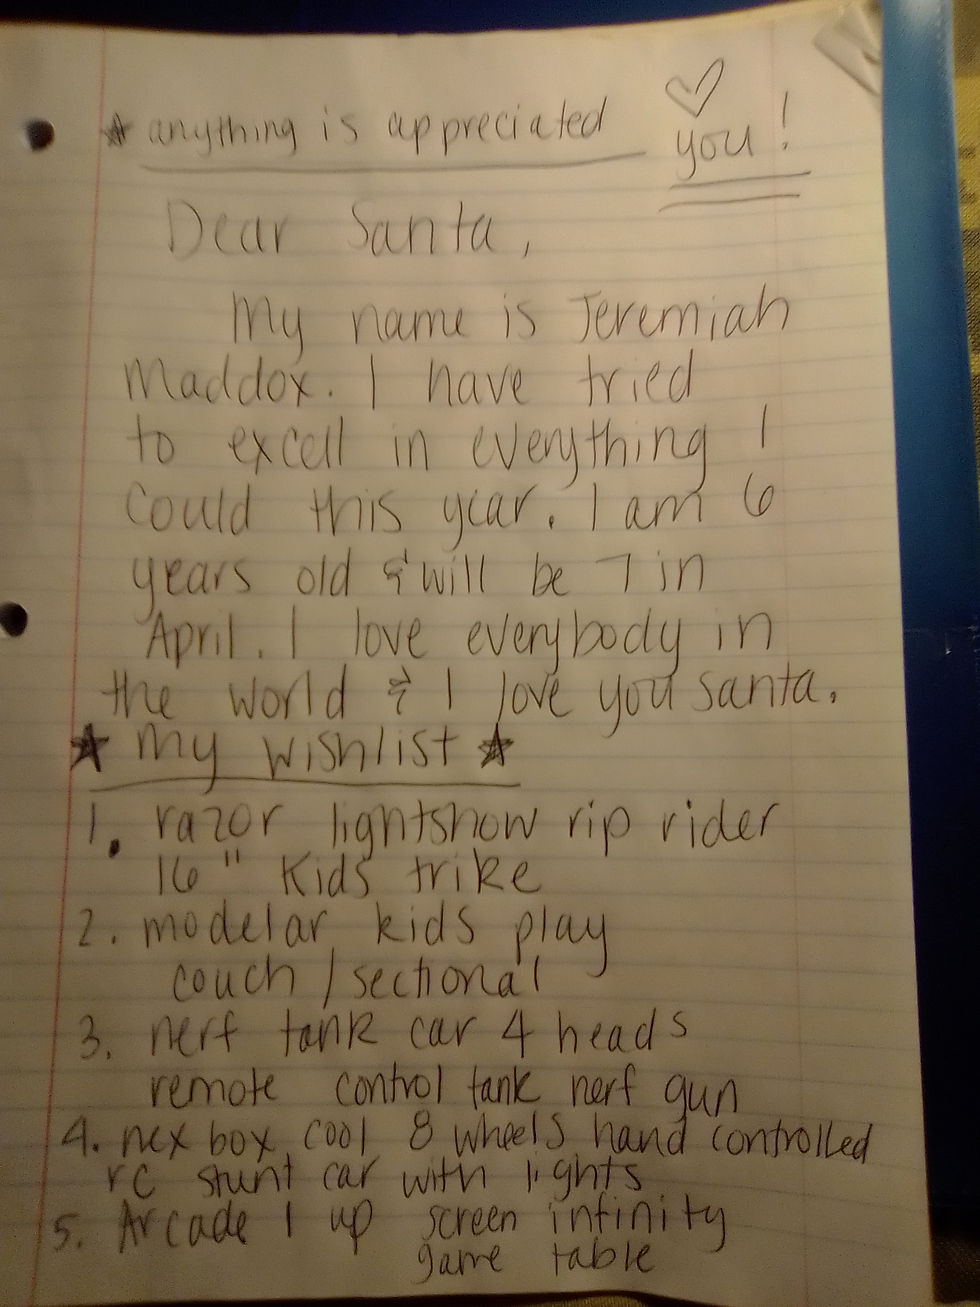 ★ anything is appreciated ♡ you!
Dear Santa,
My name is Jeremiah
Maddox. I have tried
to excell in everything I
could this year. I am 6
years old & will be 7 in
April. I love everybody in
the world & I love you santa.
★ my wishlist ★
1. razor lightshow rip rider
16" Kids trike
2. modelar kids play
couch / sectional
3. nerf tank car 4 heads
remote control tank nerf gun
4. nex box cool 8 wheels hand controlled
rc stunt car with lights
5. Arcade 1 up screen infinity
game table